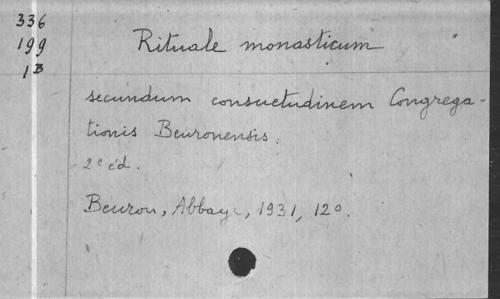 336
199
1B
Rituale monasticum
secundum consuetudinem Congrega-
tionis Beuronensis.
2e éd.
Beuron, Abbaye, 1931, 12o.